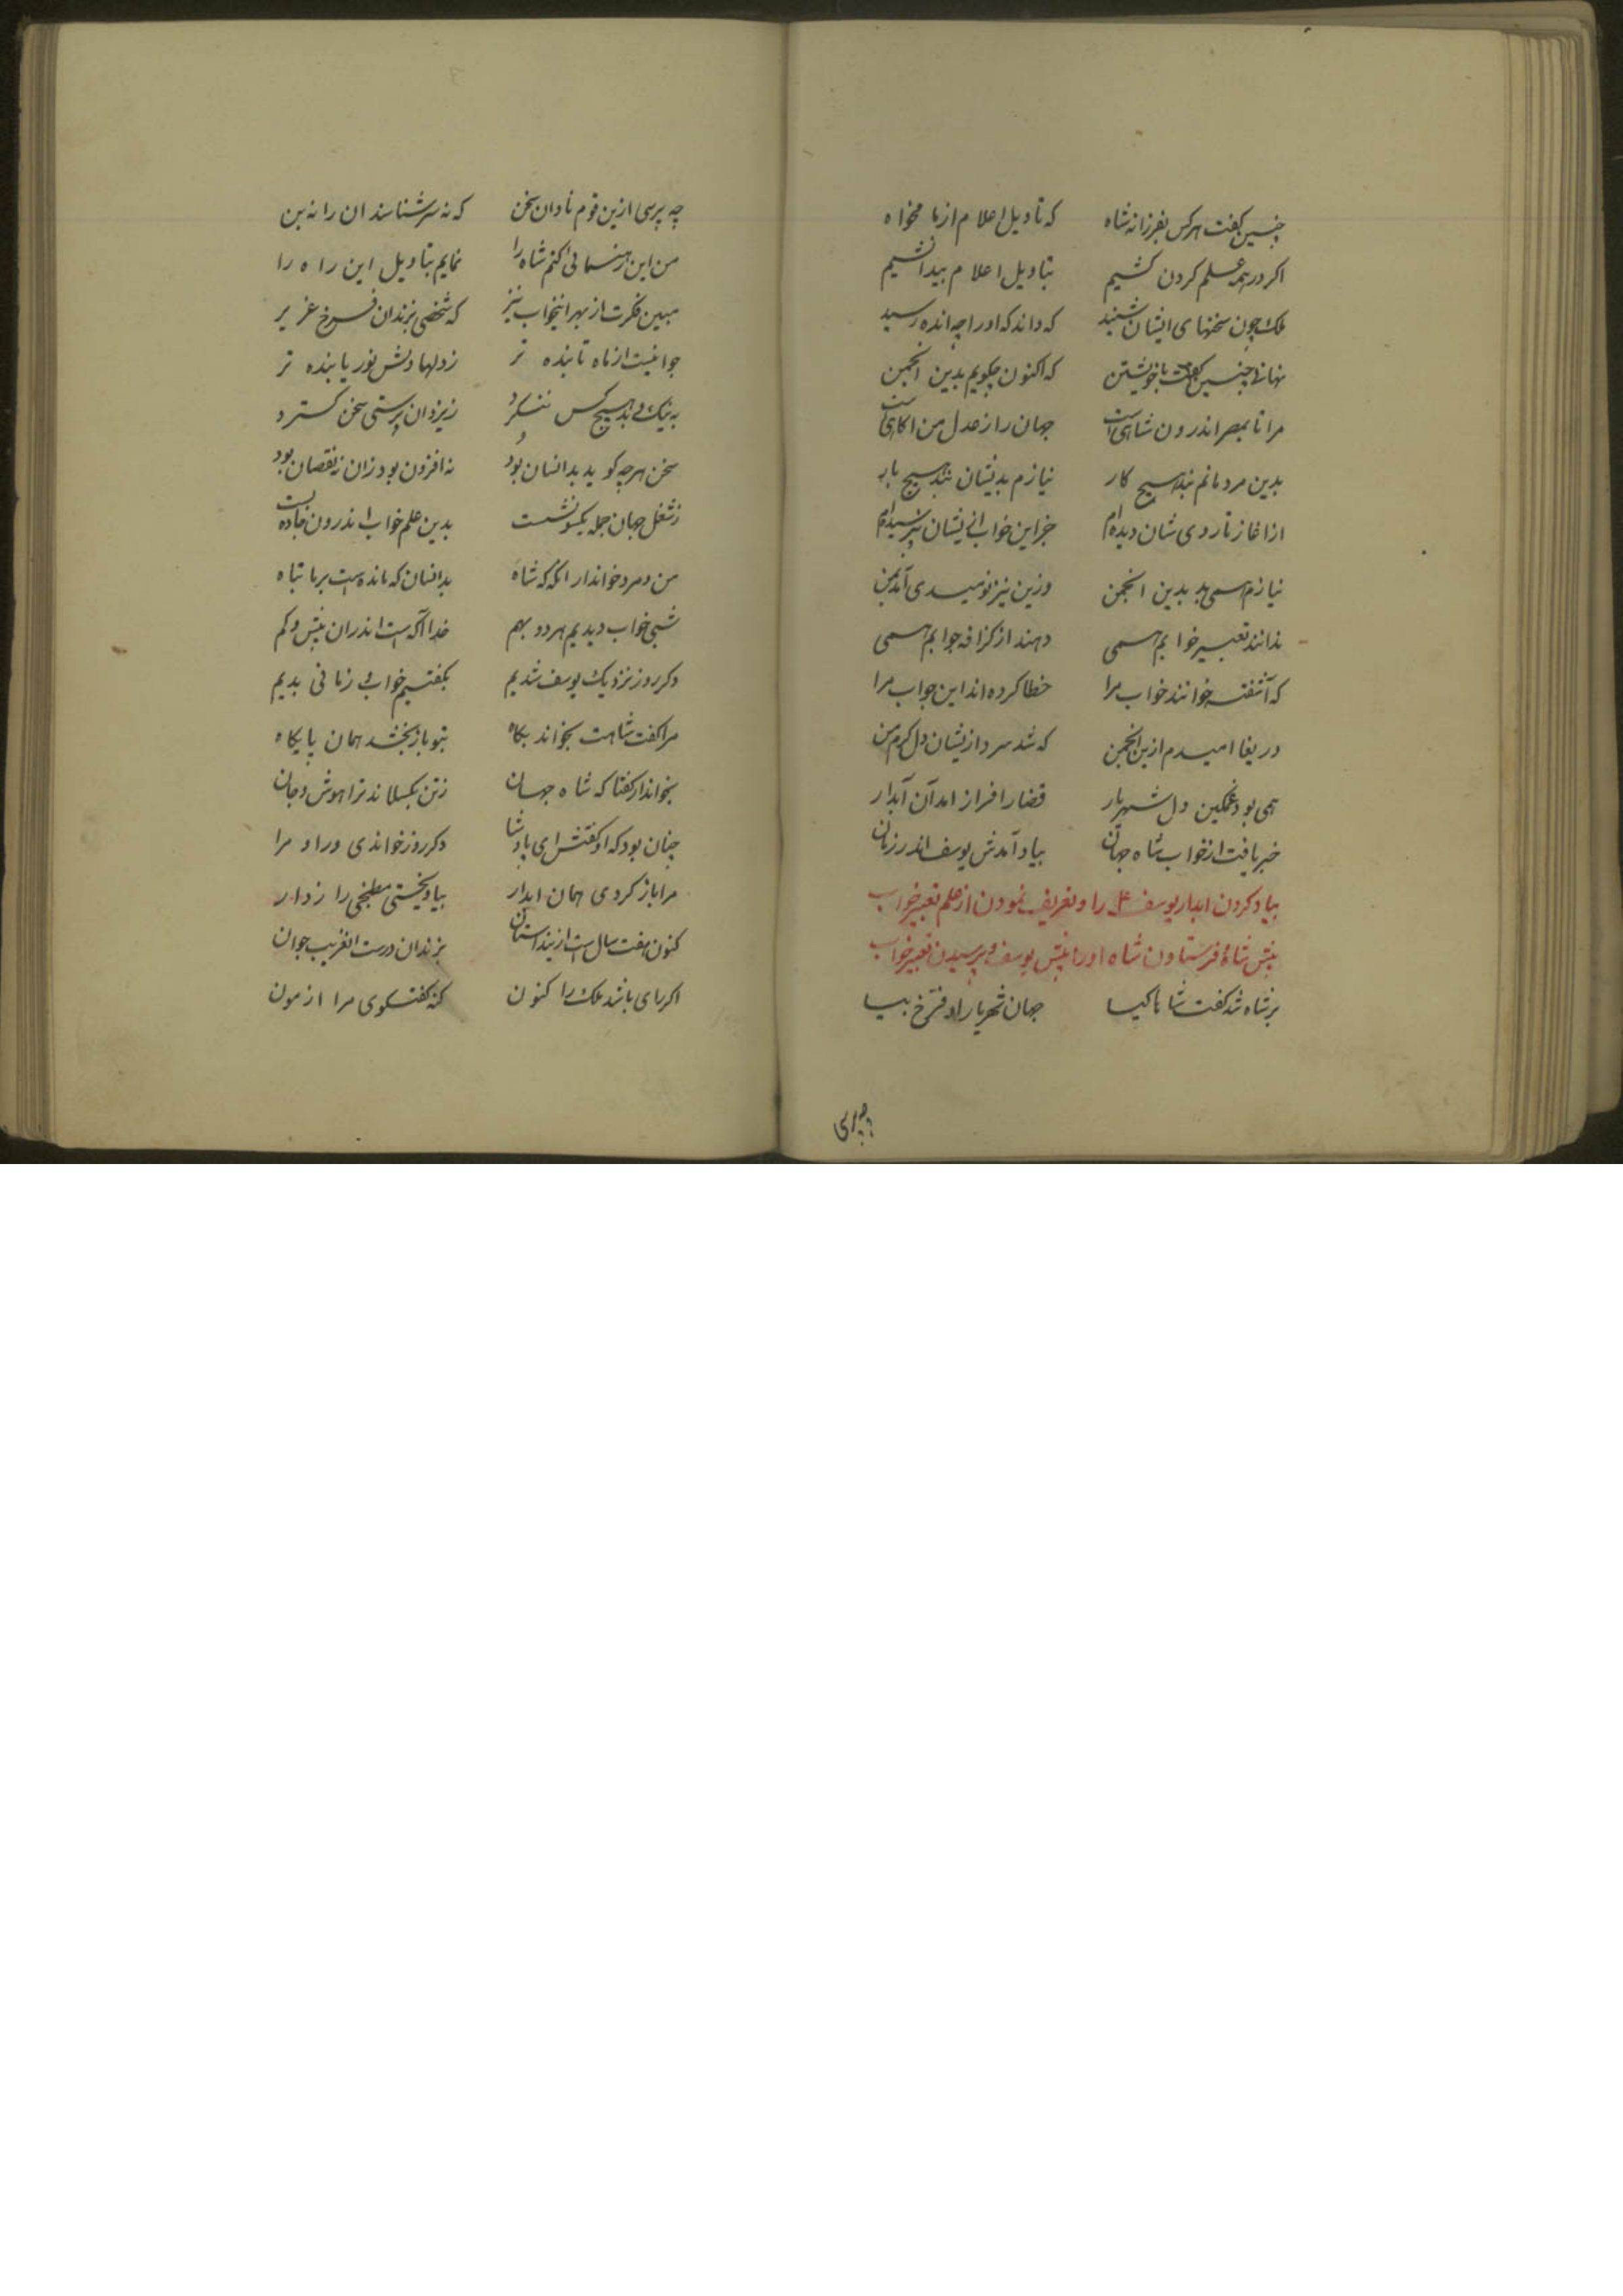 چنین گفت هرکس بفرزانه شاه که تاویل اعلام از ما مخواه
اکر در همه علم کردن کشیم بتاویل اعلام بیدانشیم
ملک چون سخنهای ایشان شنید که داند که او را چه انده رسید
نهانی چنین گفت با خویشتن که اکنون چکویم بدین انجمن
مرا تا بمصر اندرون شاهی است جهان را ز عدل من اکاهی است
بدین مردمانم نبد هیچ کار نیازم بدیشان نبد هیچ بار
از اغاز تا روی شان دیده‌ام جز این خواب از ایشان نپرسیده‌ام
نیازم همی بد بدین انجمن وزین نیز نومیدی آمد بمن
ندانند تعبیر خوابم همی دهند از کزافه جوابم همی
که آشفته خوانند خواب مرا خطا کرده‌اند این جواب مرا
دریغا امیدم ازین انجمن که شد سرد ازیشان دل کرم من
همی بود غمگین دل شهریار قضا را فراز امد آن آبدار
خبر یافت از خواب شاه جهان بیاد آمدش یوسف اندر زمان
بیاد کردن ابدار یوسف ع را و تعریف نمودن از علم تعبیر خواب
پیش شاه و فرستادن شاه او را پیش یوسف و پرسیدن تعبیر خواب
بر شاه شد گفت شاها کیا جهان شهریارا و فرخ بیا
چه پرسی
چه پرسی ازین قوم نادان سخن که نه سر شناسند ان را نه بن
من این رهنمائی کنم شاه را نمایم بتاویل این راه را
مبین فکرت از بهر اینخواب نیز که شخصی بزندان فرخ عزیز
جوانیست از ماه تابنده تر ز دلها دلش نور یابنده تر
به نیک و بد هیچ کس ننکرد ز یزدان پرستی سخن کسترد
سخن هرچه کوید بدانسان بود نه افزون بود زان نه نقصان بود
ز شغل جهان جمله یکسو نشست بدین علم خواب اندرون
من و مرد خواندار انکه که شاه بدانسان که مانده است بر ما تباه
شبی خواب دیدیم هر دو بهم خدا آکه است اندران بیش و کم
دکر روز نزدیک یوسف شدیم بکفتیم خواب و زمانی بدیم
مرا کفت شاهت بخواند بکاه بتو باز بخشد همان پایکاه
بخواندار کفتا که شاه جهان ز تن بکسلاند ترا هوش و جان
چنان بود که او گفتش ای پادشا دکر روز خواندی ورا و مرا
مرا باز کردی همان ابدار بیاویختی مطبخی را ز دار
کنون هفت سال است از این داستان بزندان درست انغریب جوان
اکر رای باشد ملک را کنون کند کفتکوی مرا ازمون